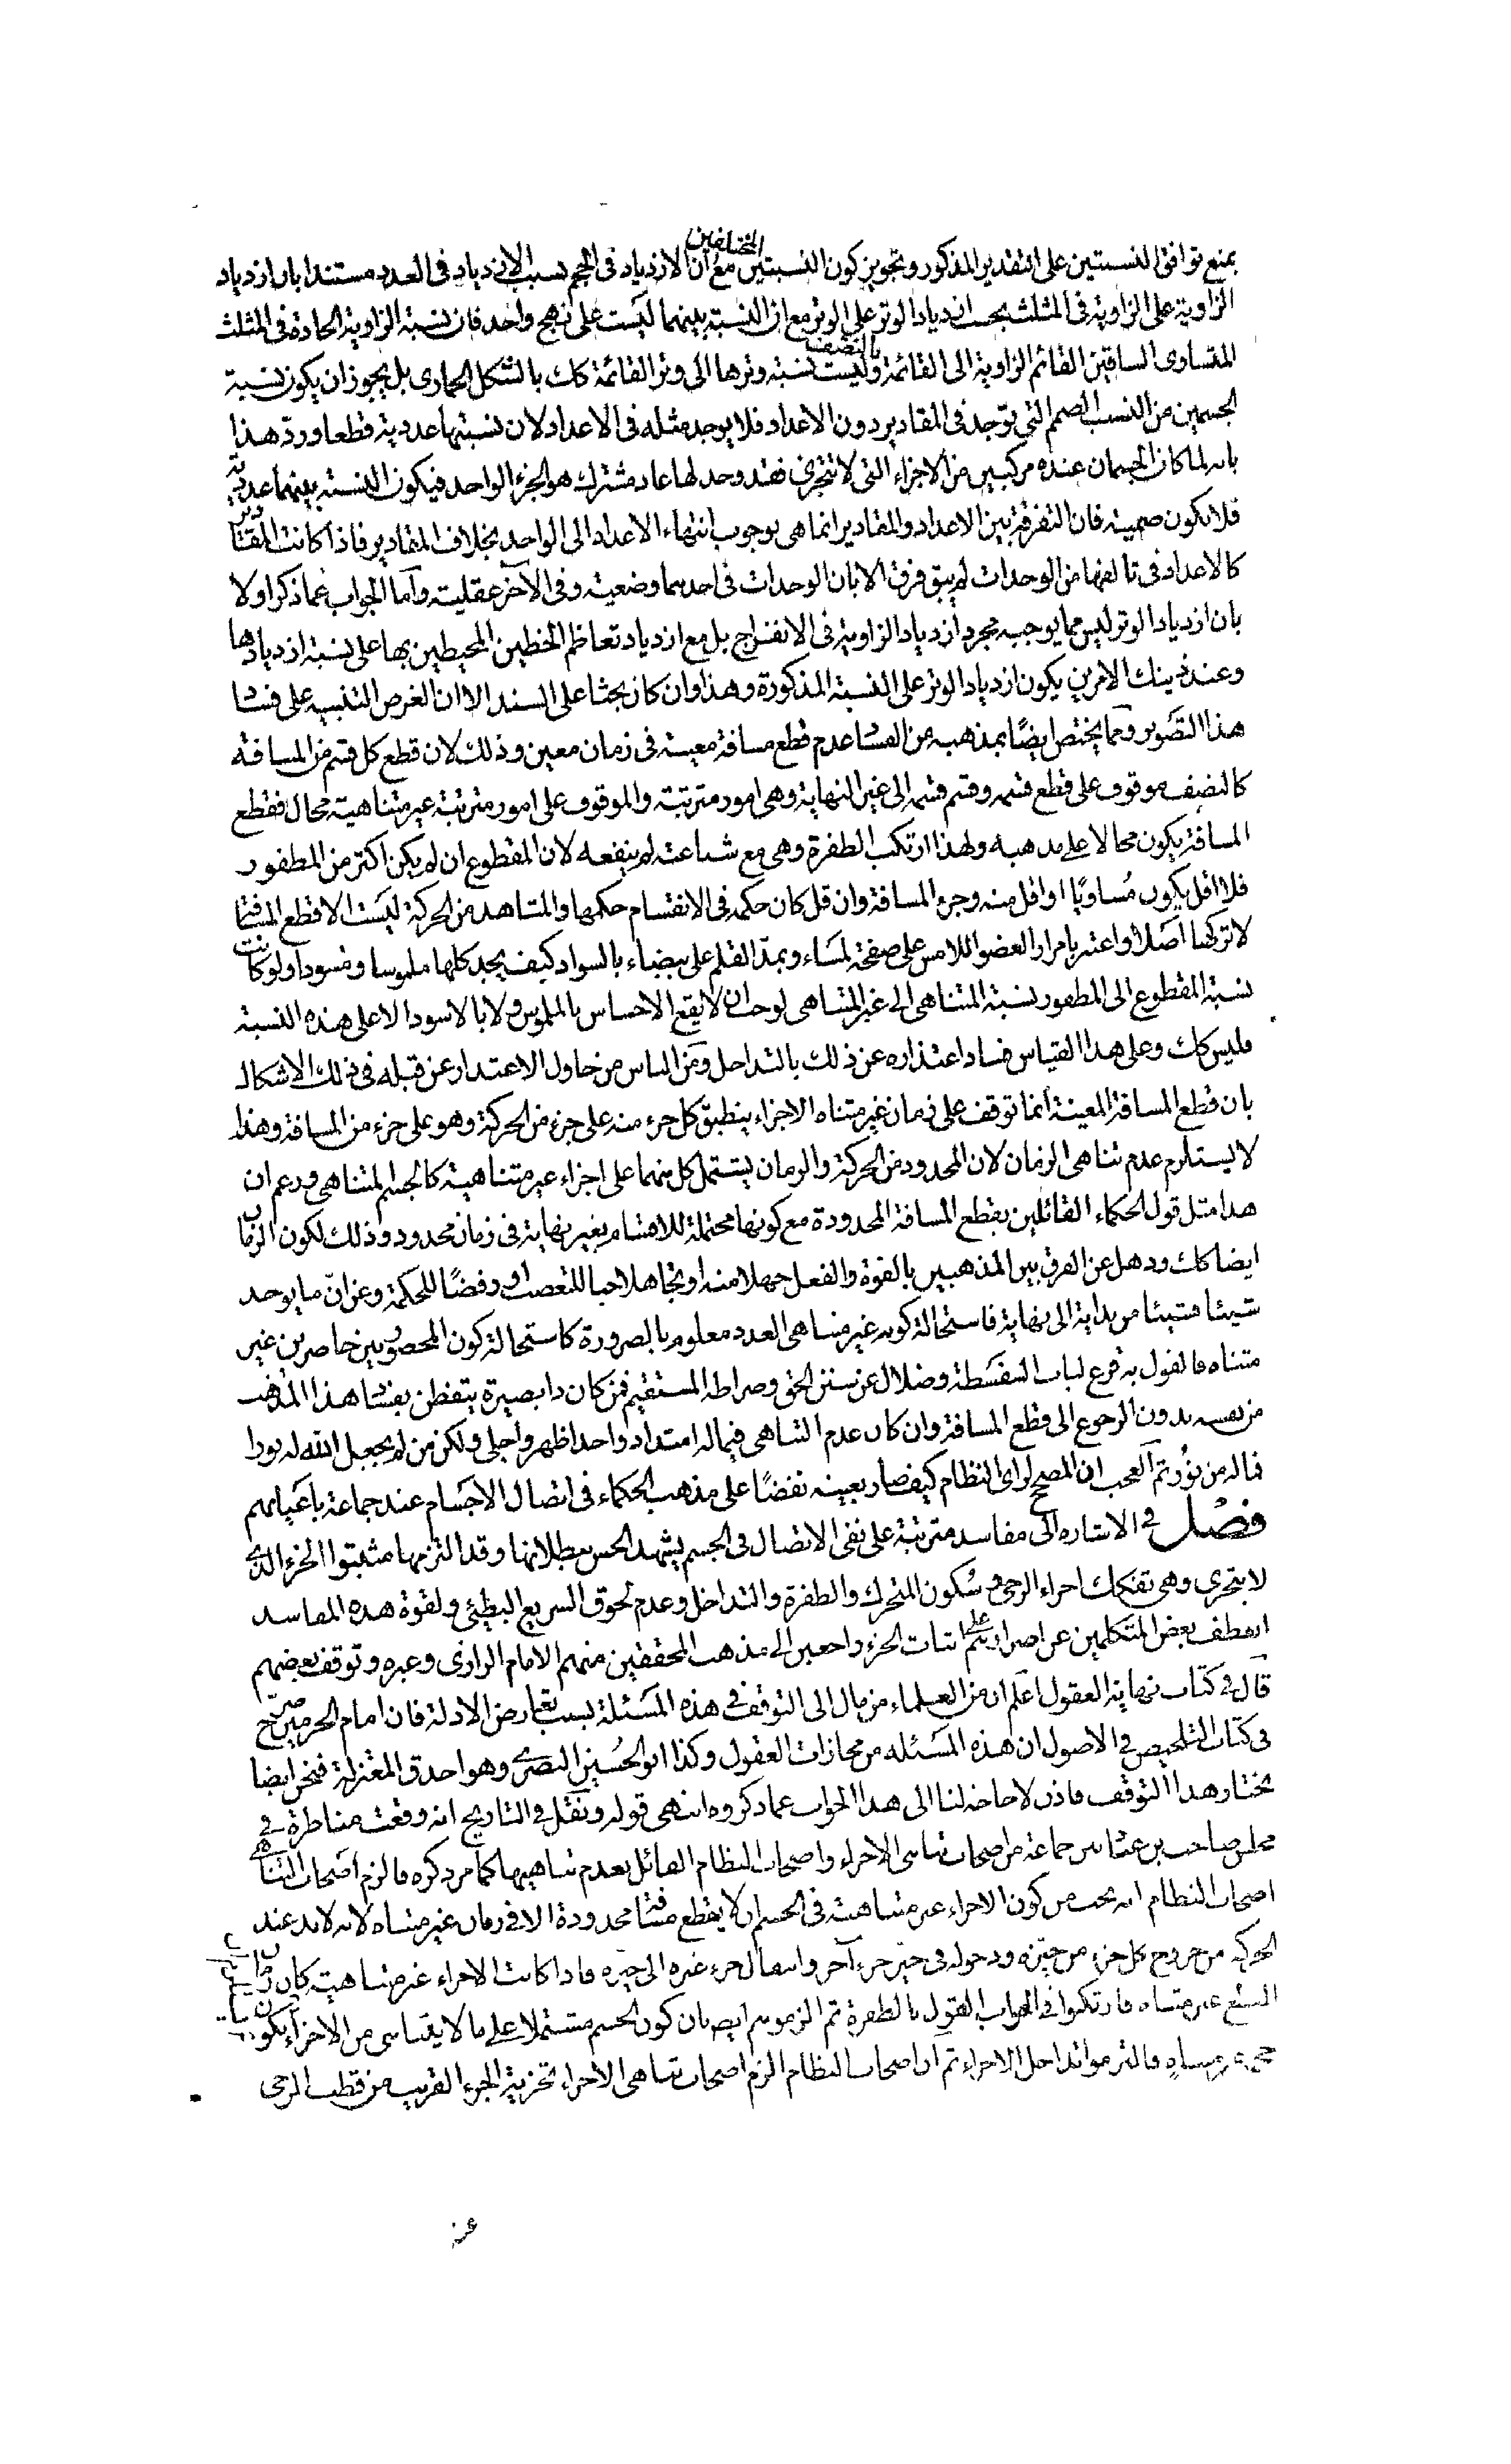 بمنع توافق النسبتين على التقدير المذكور وتجويز كون النسبتين المختلفين مع ان الازدياد فى الحجم بسبب الازدياد فى العدد مستندا بان ازدياد
الزاوية على الزاوية فى المثلث بحسب ازدياد الوتر على الوتر مع ان النسبة بينهما ليست على نهج واحد فان نسبة الزاوية الحادة فى المثلث
المتساوى الساقين القائم الزاوية الى القائمة بالنصف وليست نسبة وترها الى وتر القائمة كك بالشكل الحمارى بل يجوز ان يكون نسبة
الجسمين من النسب الصم التى توجد فى المقادير دون الاعداد فلا يوجد مثله فى الاعداد لان نسبتها عددية قطعا ورد هذا
بانه لما كان الجسمان عنده مركبين من الاجزاء التى لا تتجزى فقد وجد لها عاد مشترك هو الجزء الواحد فيكون النسبة بينهما عددية
فلا يكون صمية فان التفرقة بين الاعداد والمقادير انما هى بوجوب انتهاء الاعداد الى الواحد بخلاف المقادير فاذا كانت المقادير
كالاعداد فى تالفها من الوحدات لم يبق فرق الا بان الوحدات فى احدهما وضعية وفى الآخر عقلية وأما الجواب عما ذكر اولا
بان ازدياد الوتر ليس مما يوجبه مجرد ازدياد الزاوية فى الانفراج بل مع ازدياد تعاظم الخطين المحيطين بها على نسبة ازديادها
وعند ذينك الامرين يكون ازدياد الوتر على النسبة المذكورة وهذا وان كان بحثا على السند الا ان الغرض التنبيه على فساد
هذا التصوير ومما يختص ايضًا بمذهبه من الفساد عدم قطع مسافة معينة فى زمان معين وذلك لان قطع كل قسم من المسافة
كالنصف موقوف على قطع قسمه وقسم قسمه الى غير النهاية وهى امور مترتبة والموقوف على امور مترتبة غير متناهية محال فقطع
المسافة يكون محالا على مذهبه ولهذا ارتكب الطفرة وهى مع شناعته لم ينفعه لان المقطوع ان لم يكن اكثر من المطفور
فلا اقل يكون مُساويًا او اقل منه وجزء المسافة وان قل كان حكمه فى الانقسام حكمها والمشاهد من الحركة ليست الا قطع المسافة
لا تركها اصلا واعتبر بامرار العضو اللامس على صفحة لمساء وبمدّ القلم على بيضاء بالسواد كيف يجد كلها ملموسا ومسودا ولو كانت
نسبة المقطوع الى المطفور نسبة المتناهى الى غير المتناهى لوجب ان لا يقع الاحساس بالملموس ولا بالاسود الا على هذه النسبة
فليس كك وعلى هذا القياس فساد اعتذاره عن ذلك بالتداخل ومن الناس من حاول الاعتذار عن قبله فى ذلك الاشكال
بان قطع المسافة المعينة انما توقف على زمان غير متناه الاجزاء ينطبق كل جزء منه على جزء من الحركة وهو على جزء من المسافة وهذا
لا يستلزم عدم تناهى الزمان لان المحدود من الحركة والزمان يشتمل كل منهما على اجزاء غير متناهية كالجسم المتناهى وزعم ان
هذا مثل قول الحكماء القائلين بقطع المسافة المحدودة مع كونها محتملة للانقسام بغير نهاية فى زمان محدود وذلك لكون الزمان
ايضا كك وذهل عن الفرق بين المذهبين بالقوة والفعل جهلا منه او تجاهلا حبا للتعصب او رفضًا للحكمة وعن انّ ما يوجد
شيئا فشيئا من بداية الى نهاية فاستحالة كونه غير متناهى العدد معلوم بالضرورة كاستحالة كون المحصور بين حاصرين غير
متناه فالقول به قرع لباب السفسطة وضلال عن سنن الحق وصراطه المستقيم فمن كان ذا بصيرة يتفطن بفساد هذا المذهب
من نفسه بدون الرجوع الى قطع المسافة وان كان عدم التناهى فيما له امتداد واحد اظهر واجلى ولكن من لم يجعل الله له نورا
فماله من نور ثم العجب ان المصحح لراى النظام كيف صار بعينه نقضًا على مذهب الحكماء فى اتصال الاجسام عند جماعة باعيانهم
فصل فى الاشارة الى مفاسد مترتبة على نفى الاتصال فى الجسم يشهد الحس ببطلانها وقد التزمها مثبتوا الجزء الذى
لا يتجزى وهى تفكك اجزاء الرحى وسكون المتحرك والطفرة والتداخل وعدم لحوق السريع البطئى ولقوة هذه المفاسد
انعطف بعض المتكلمين عن اصرارهم على اثبات الجزء راجعين الى مذهب المحققين منهم الامام الرازى وغيره وتوقف بعضهم
قال فى كتاب نهاية العقول اعلم ان من العلماء من مال الى التوقف فى هذه المسئلة بسبب تعارض الادلة فان امام الحرمين صرّح
فى كتاب التلخيص فى الاصول ان هذه المسئله من محارات العقول وكذا ابو الحُسين البصرى وهو احذق المعتزلة فنحن ايضا
نختار هذا التوقف فاذن لا حاجة لنا الى هذا الجواب عما ذكروه انتهى قوله ونقل فى التاريخ انه وقعت مناظرة فى
مجلس صاحب بن عباد بين جماعة من اصحاب تناهى الاجزاء واصحاب النظام القائل بعدم تناهيها كما مر ذكره فالزم اصحاب التناهى
اصحاب النظام انه يجب من كون الاجزاء غير متناهية فى الجسم ان لا يقطع مسافة محدودة الا فى زمان غير متناه لانه لا بد عند
الحركة من خروج كل جزء من حيّزه ودخوله فى حيّز جزء آخر وانتقال جزء غيره الى حيّزه فاذا كانت الاجزاء غير متناهية كان زمان
القطع غير متناه فارتكبوا فى الجواب القول بالطفرة ثم الزموهم ايضا بان كون الجسم مشتملا على ما لا يتناهى من الاجزاء يكون
حجمه غير متناهٍ فالتزموا تداخل الاجزاء ثم ان اصحاب النظام الزم اصحاب تناهى الاجزاء تجزية الجزء القريب من قطب الرحى